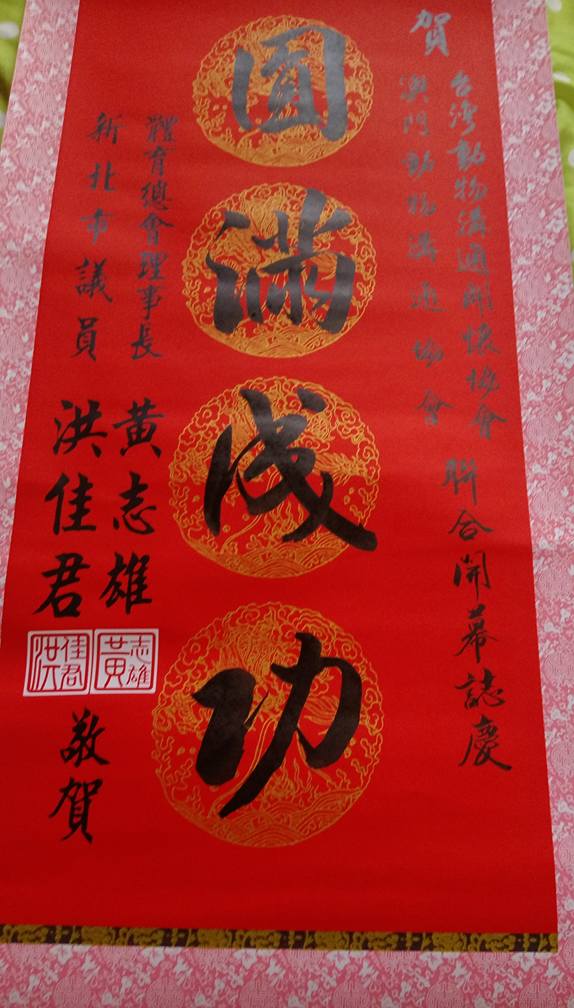 賀
台灣動物溝通關懷協會
澳門動物溝通協會
聯合開幕誌慶
圓滿成功
體育總會理事長
新北市議員
黃志雄
洪佳君
志雄黃
佳君洪
敬賀